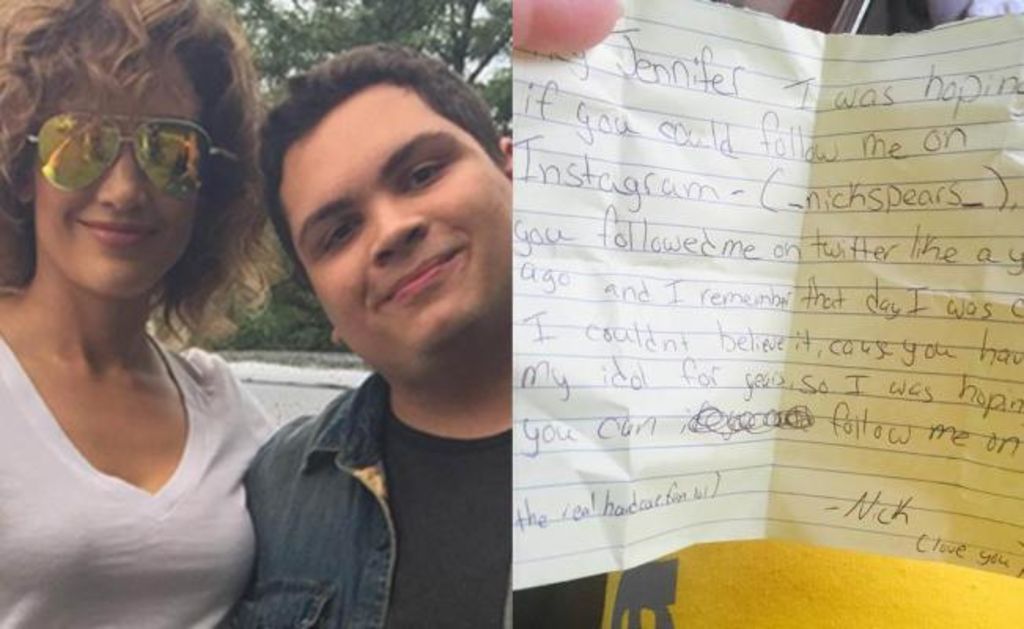 Jennifer I was hoping
if you could follow me on
Instagram - (_nickspears_),
you followed me on twitter like a y
ago and I remember that day I was c
I couldnt believe it, caus you hav
my idol for years, so I was hopin
you can follow me on
the real hardcore fan
- Nick
(love you